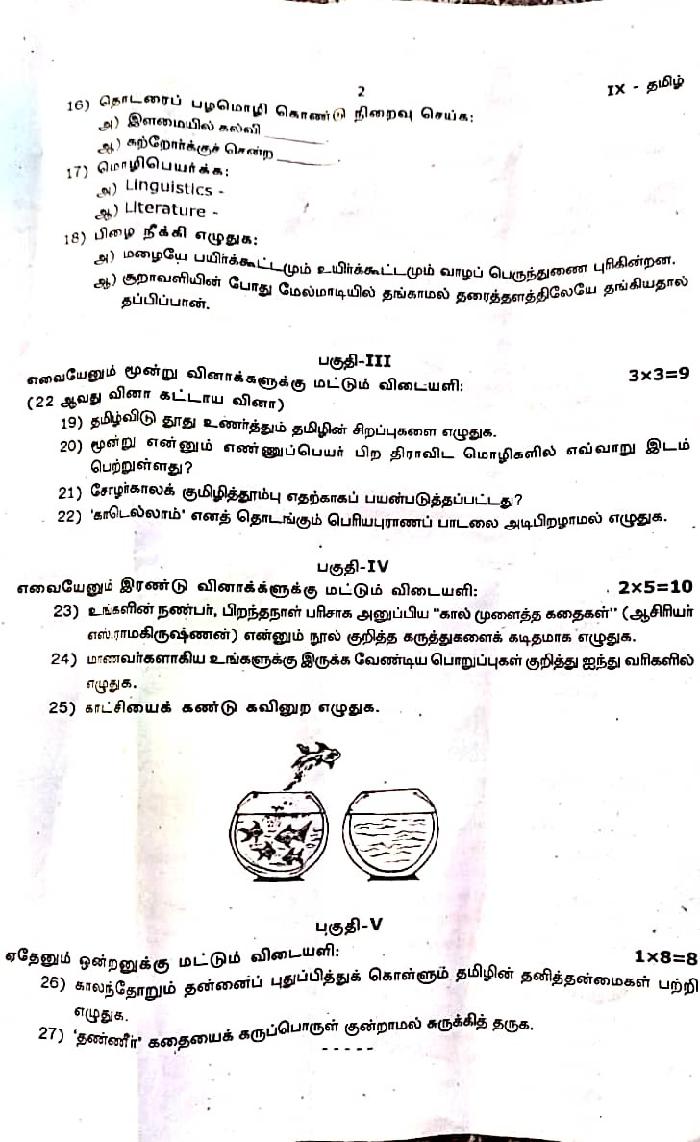 2
IX - தமிழ்
16) தொடரைப் பழமொழி கொண்டு நிறைவு செய்க:
அ) இளமையில் கல்வி ________
ஆ) கற்றோர்க்குச் சென்ற ________.
17) மொழிபெயர்க்க:
அ) Linguistics -
ஆ) Literature -
18) பிழை நீக்கி எழுதுக:
அ) மழையே பயிர்க்கூட்டமும் உயிர்க்கூட்டமும் வாழப் பெருந்துணை புரிகின்றன.
ஆ) சூறாவளியின் போது மேல்மாடியில் தங்காமல் தரைத்தளத்திலேயே தங்கியதால்
தப்பிப்பான்.
பகுதி-III
எவையேனும் மூன்று வினாக்களுக்கு மட்டும் விடையளி: 3×3=9
(22 ஆவது வினா கட்டாய வினா)
19) தமிழ்விடு தூது உணர்த்தும் தமிழின் சிறப்புகளை எழுதுக.
20) மூன்று என்னும் எண்ணுப்பெயர் பிற திராவிட மொழிகளில் எவ்வாறு இடம்
பெற்றுள்ளது?
21) சோழர்காலக் குமிழித்தூம்பு எதற்காகப் பயன்படுத்தப்பட்டது?
22) 'காடெல்லாம்' எனத் தொடங்கும் பெரியபுராணப் பாடலை அடிபிறழாமல் எழுதுக.
பகுதி-IV
எவையேனும் இரண்டு வினாக்க்ளுக்கு மட்டும் விடையளி: 2×5=10
23) உங்களின் நண்பர், பிறந்தநாள் பரிசாக அனுப்பிய "கால் முளைத்த கதைகள்" (ஆசிரியர்
எஸ்.ராமகிருஷ்ணன்) என்னும் நூல் குறித்த கருத்துகளைக் கடிதமாக எழுதுக.
24) மாணவர்களாகிய உங்களுக்கு இருக்க வேண்டிய பொறுப்புகள் குறித்து ஐந்து வரிகளில்
எழுதுக.
25) காட்சியைக் கண்டு கவினுற எழுதுக.
பகுதி-V
ஏதேனும் ஒன்றனுக்கு மட்டும் விடையளி: 1×8=8
26) காலந்தோறும் தன்னைப் புதுப்பித்துக் கொள்ளும் தமிழின் தனித்தன்மைகள் பற்றி
எழுதுக.
27) 'தண்ணீர்' கதையைக் கருப்பொருள் குன்றாமல் சுருக்கித் தருக.
-----